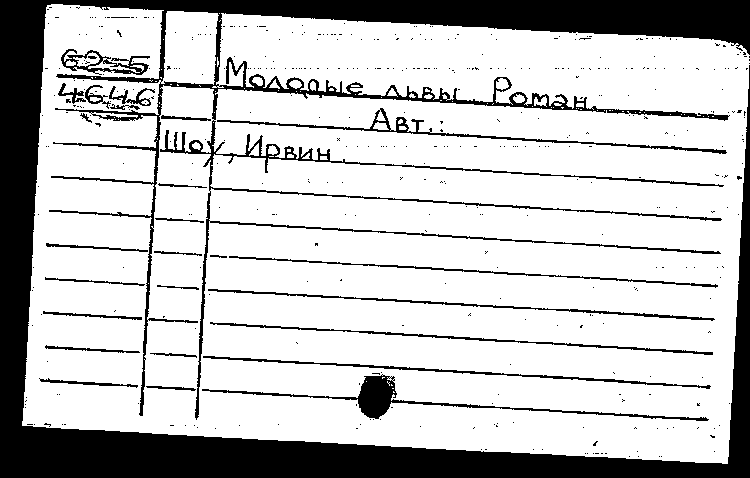 62-5
4646
Молодые львы. Роман.
Авт.:
Шоу, Ирвин.